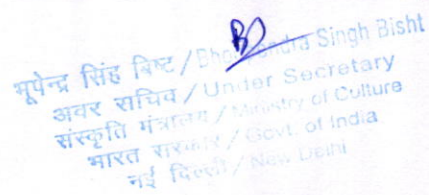 भूपेन्द्र सिंह बिष्ट / Bhopendra Singh Bisht
अवर सचिव / Under Secretary
संस्कृति मंत्रालय / Ministry of Culture
भारत सरकार / Govt. of India
नई दिल्ली / New Delhi